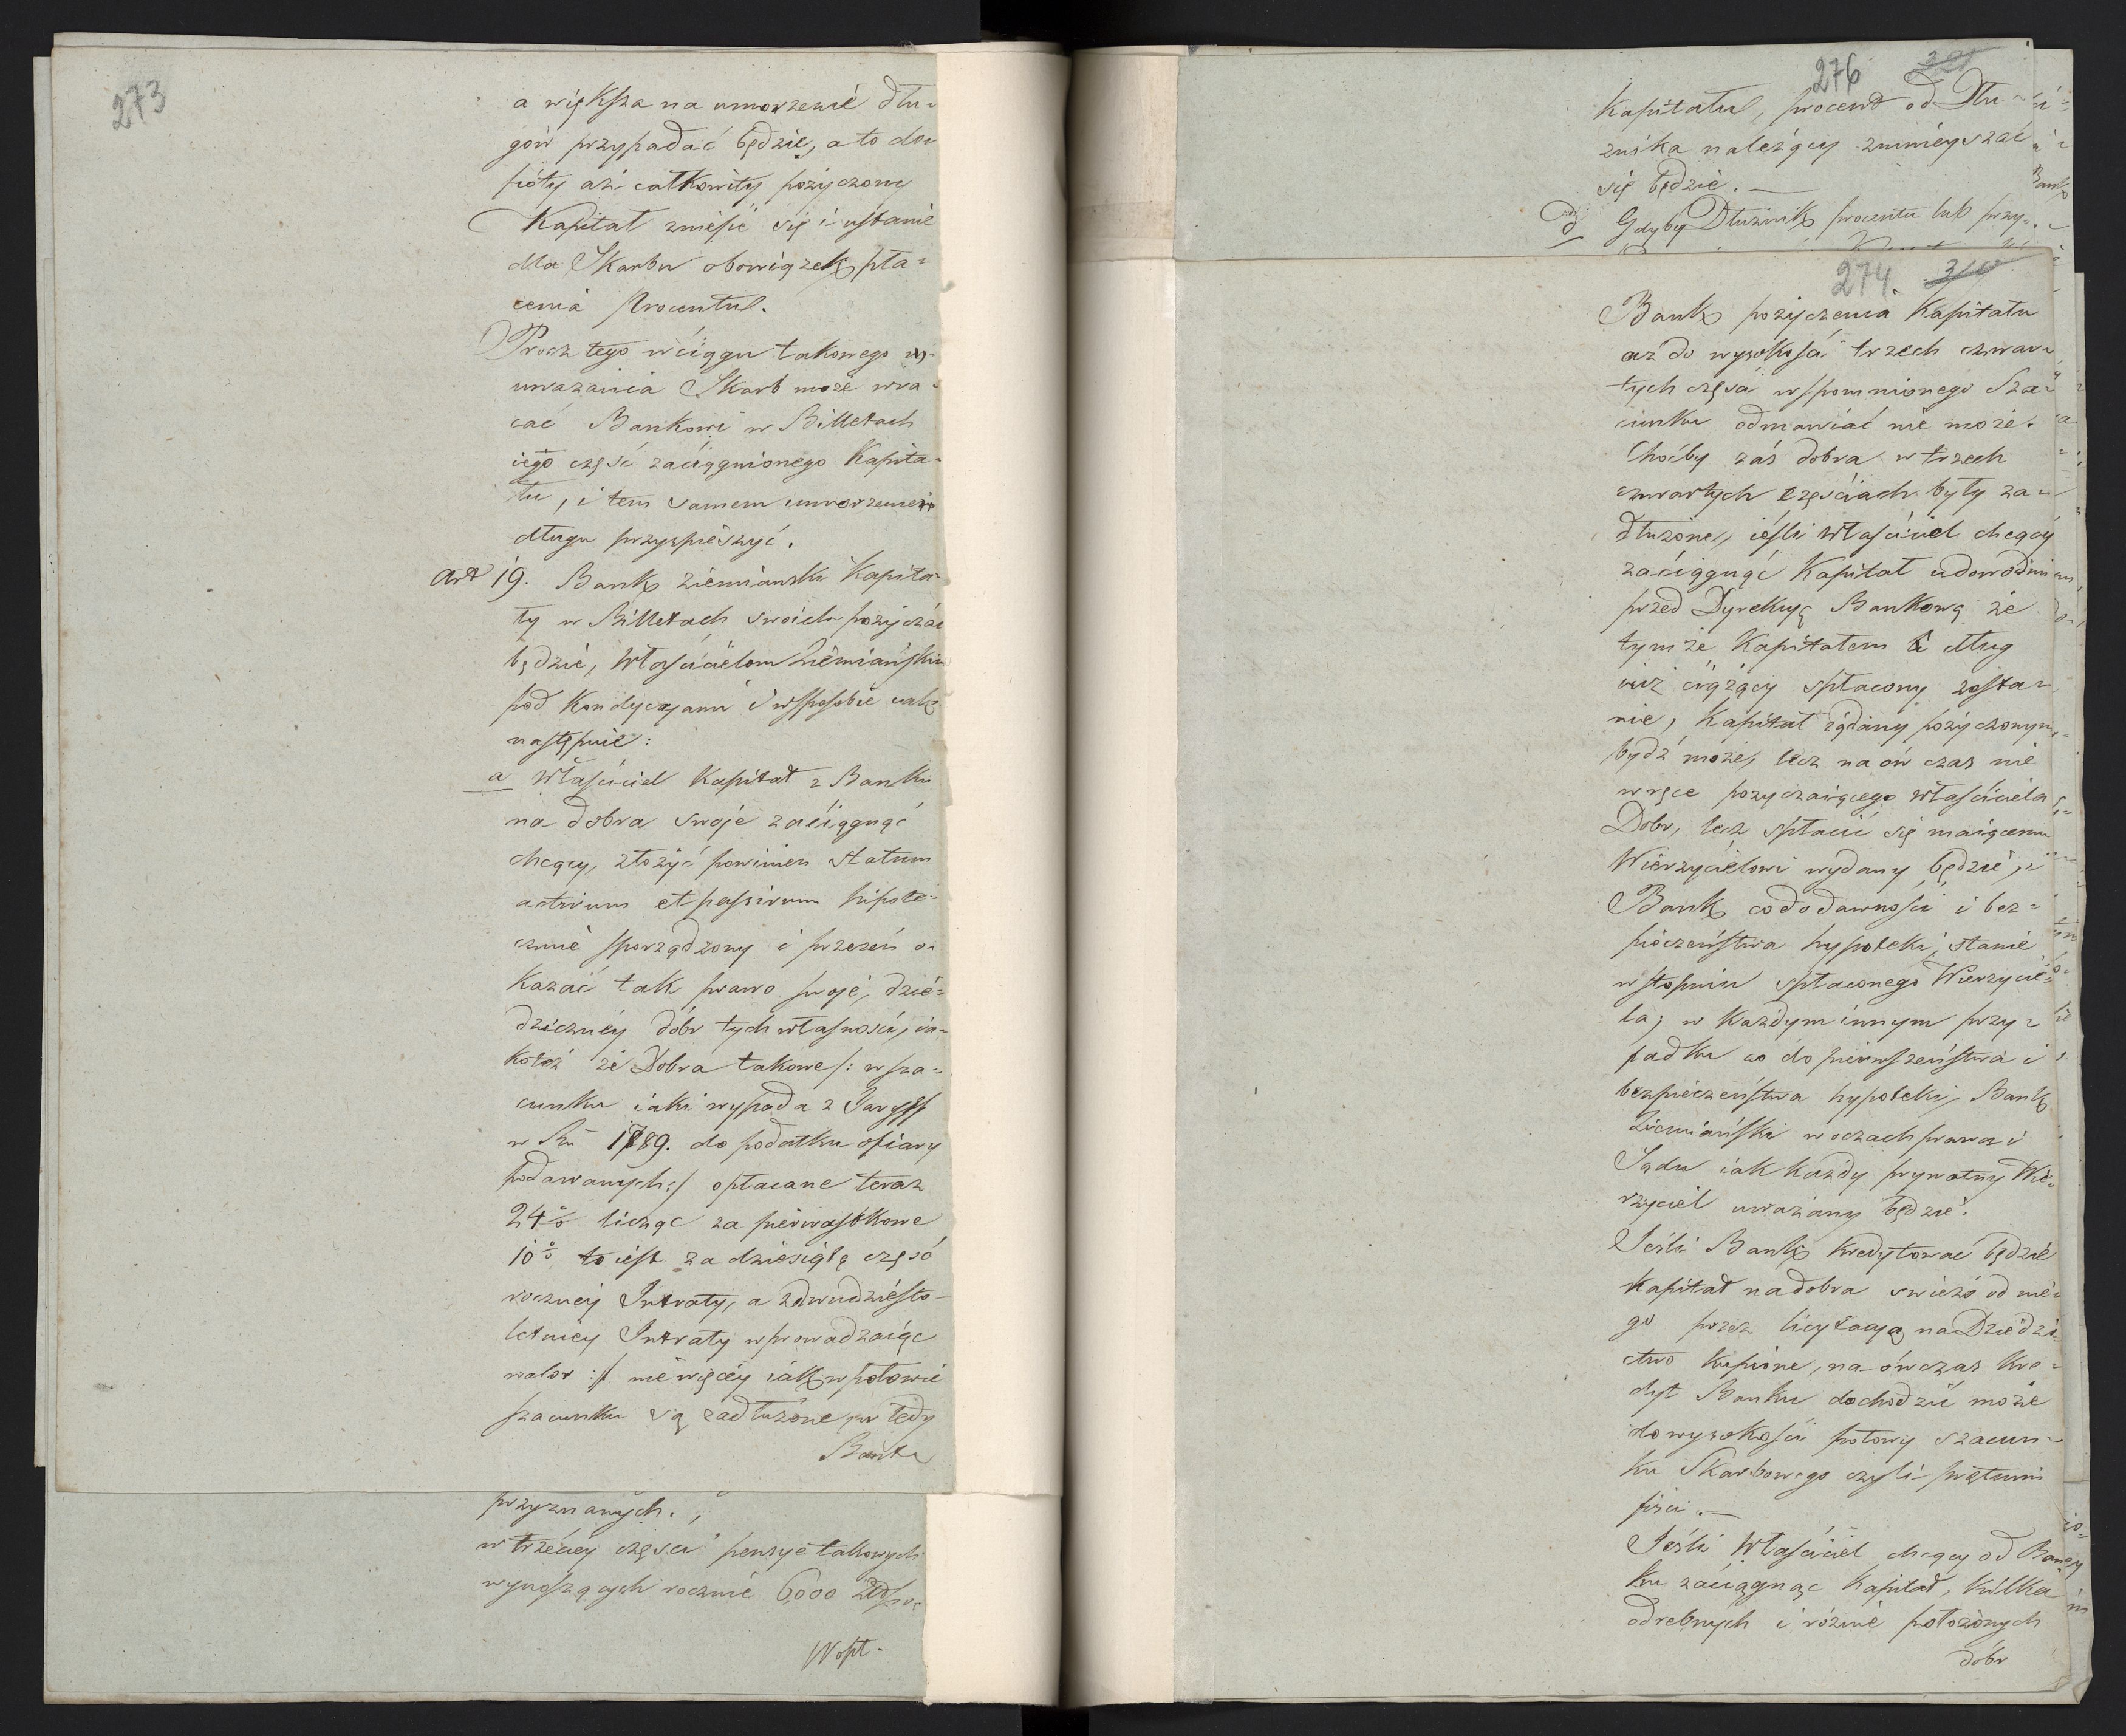 273
a większa na umorzenie dłu=
gów przypadać będzie, a to do=
póty aż całkowity pożyczony
Kapitał zniesie się i ustanie
dla Skarbu obowiązek pła=
cenia Procentu.
Procz tego w ciągu takowego
umazania Skarb może wra=
cać Bankowi w Billetach
iego część zaciągnionego Kapita=
łu, i tem samem umorzenie
długu przyspieszyć.
Art 19. Bank ziemiański Kapita=
ły w Billetach swoich pożyczać
będzie, Właścicielom Ziemiańskim
pod Kondycyjami i wsposobie iak
następuie:
a Właściciel Kapitał z Banku
na dobra swoje zaciągnąć
chcący, złożyć powinien statum
activum et passivum hipote=
cznie sporządzony i przezeń o=
kazać tak prawo swoje, dzie=
dziczney dóbr tych własności, ia=
koteż że Dobra takowe /: w sza=
cunku iaki wypada z Taryff
w Ru 1789. do podatku ofiary
podawanych :/ opłacane teraz
24 % licząc za pierwiastkowe
10 % to iest za dziesiątą część
roczney Intraty, a z dwudziesto=
letniey Intraty wprowadzaiąc
walor :/ nie więcey iak w połowie
szacunku są zadłużone, tedy
Bank
przyznanych.
w trzeciey części pensye takowych
wynoszących rocznie 6,000
Wspł.
276
Kapitału, procent od Dłu=
żnika należący zmnieyszać
się będzie.
d Gdyby Dłużnik procentu lub przy=
274. 310
Bank pożyczenia Kapitału
aż do wysokości trzech czwar=
tych części wspomnionego Sza=
cunku odmawiać nie może.
Choćby zaś dobra w trzech
czwartych częściach były za=
dłużone, ieśli Właściciel chcący
zaciągnąć Kapitał udowodni
przed Dyrekcyą Bankową że
tymże Kapitałem dług
iuż ciążący spłacony zosta=
nie, Kapitał żądany pożyczonym
bydź może, lecz na ów czas nie
w ręce pożyczaiącego Właściciela
Dobr, lecz spłacić się maiącemu
Wierzycielowi wydany będzie, i
Bank co do dawności i bez=
pieczeństwa hypoteki, stanie
w stopniu spłaconego Wierzycie=
la; w każdym innym przy=
padku co do pierwszeństwa i
bezpieczeństwa hypoteki, Bank
Ziemiański w oczach prawa i
Sądu iak każdy prywatny Wie=
rzyciel uważany będzie.
Ieśli Bank kredytować będzie
Kapitał na dobra świeżo od nie=
go przez licytacyą na Dziedzi=
ctwo kupione, na ówczas kre=
dyt Banku dochodzić może
do wysokości połowy szacun=
ku Skarbowego czyli prætium
fisci.
Ieśli Właściciel chcący od Ban=
ku zaciągnąć Kapitał, kilka
odrębnych i różnie położonych
dóbr